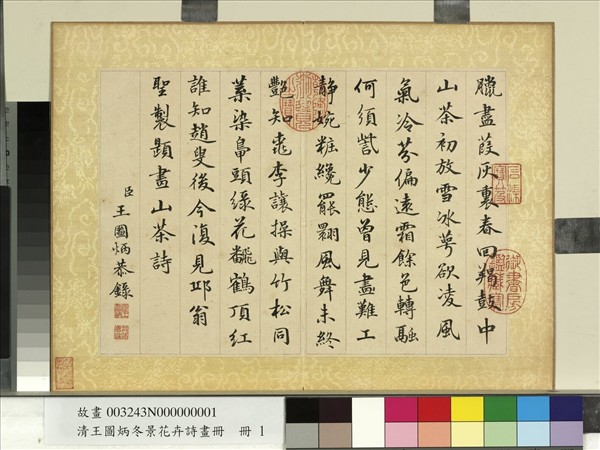 臘盡葭灰裏春回羯鼓中
山茶初放雪冰萼欲凌風
氣冷芬偏遠霜餘色轉融
何須訾少態曾見畫難工
靜婉粧纔罷翾風舞未終
豔知桃李讓操與竹松同
蘂染鳧頭綠花翻鶴頂紅
誰知趙叟後今復見邛翁
聖製題畫山茶詩
臣王圖炳恭錄
御書房鑑藏寶
故畫 003243N000000001
清王圖炳冬景花卉詩畫冊 冊 1